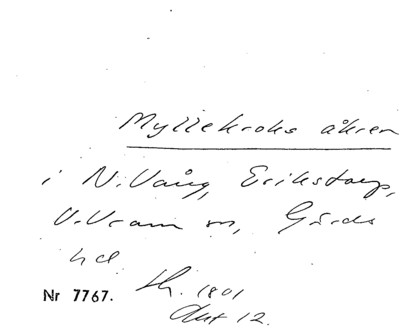 Myllekroks åkren
i N. Vång, Erikstorp,
V. Vram sn, Gärds
hd
Nr 7767. 1801
Akt 12.